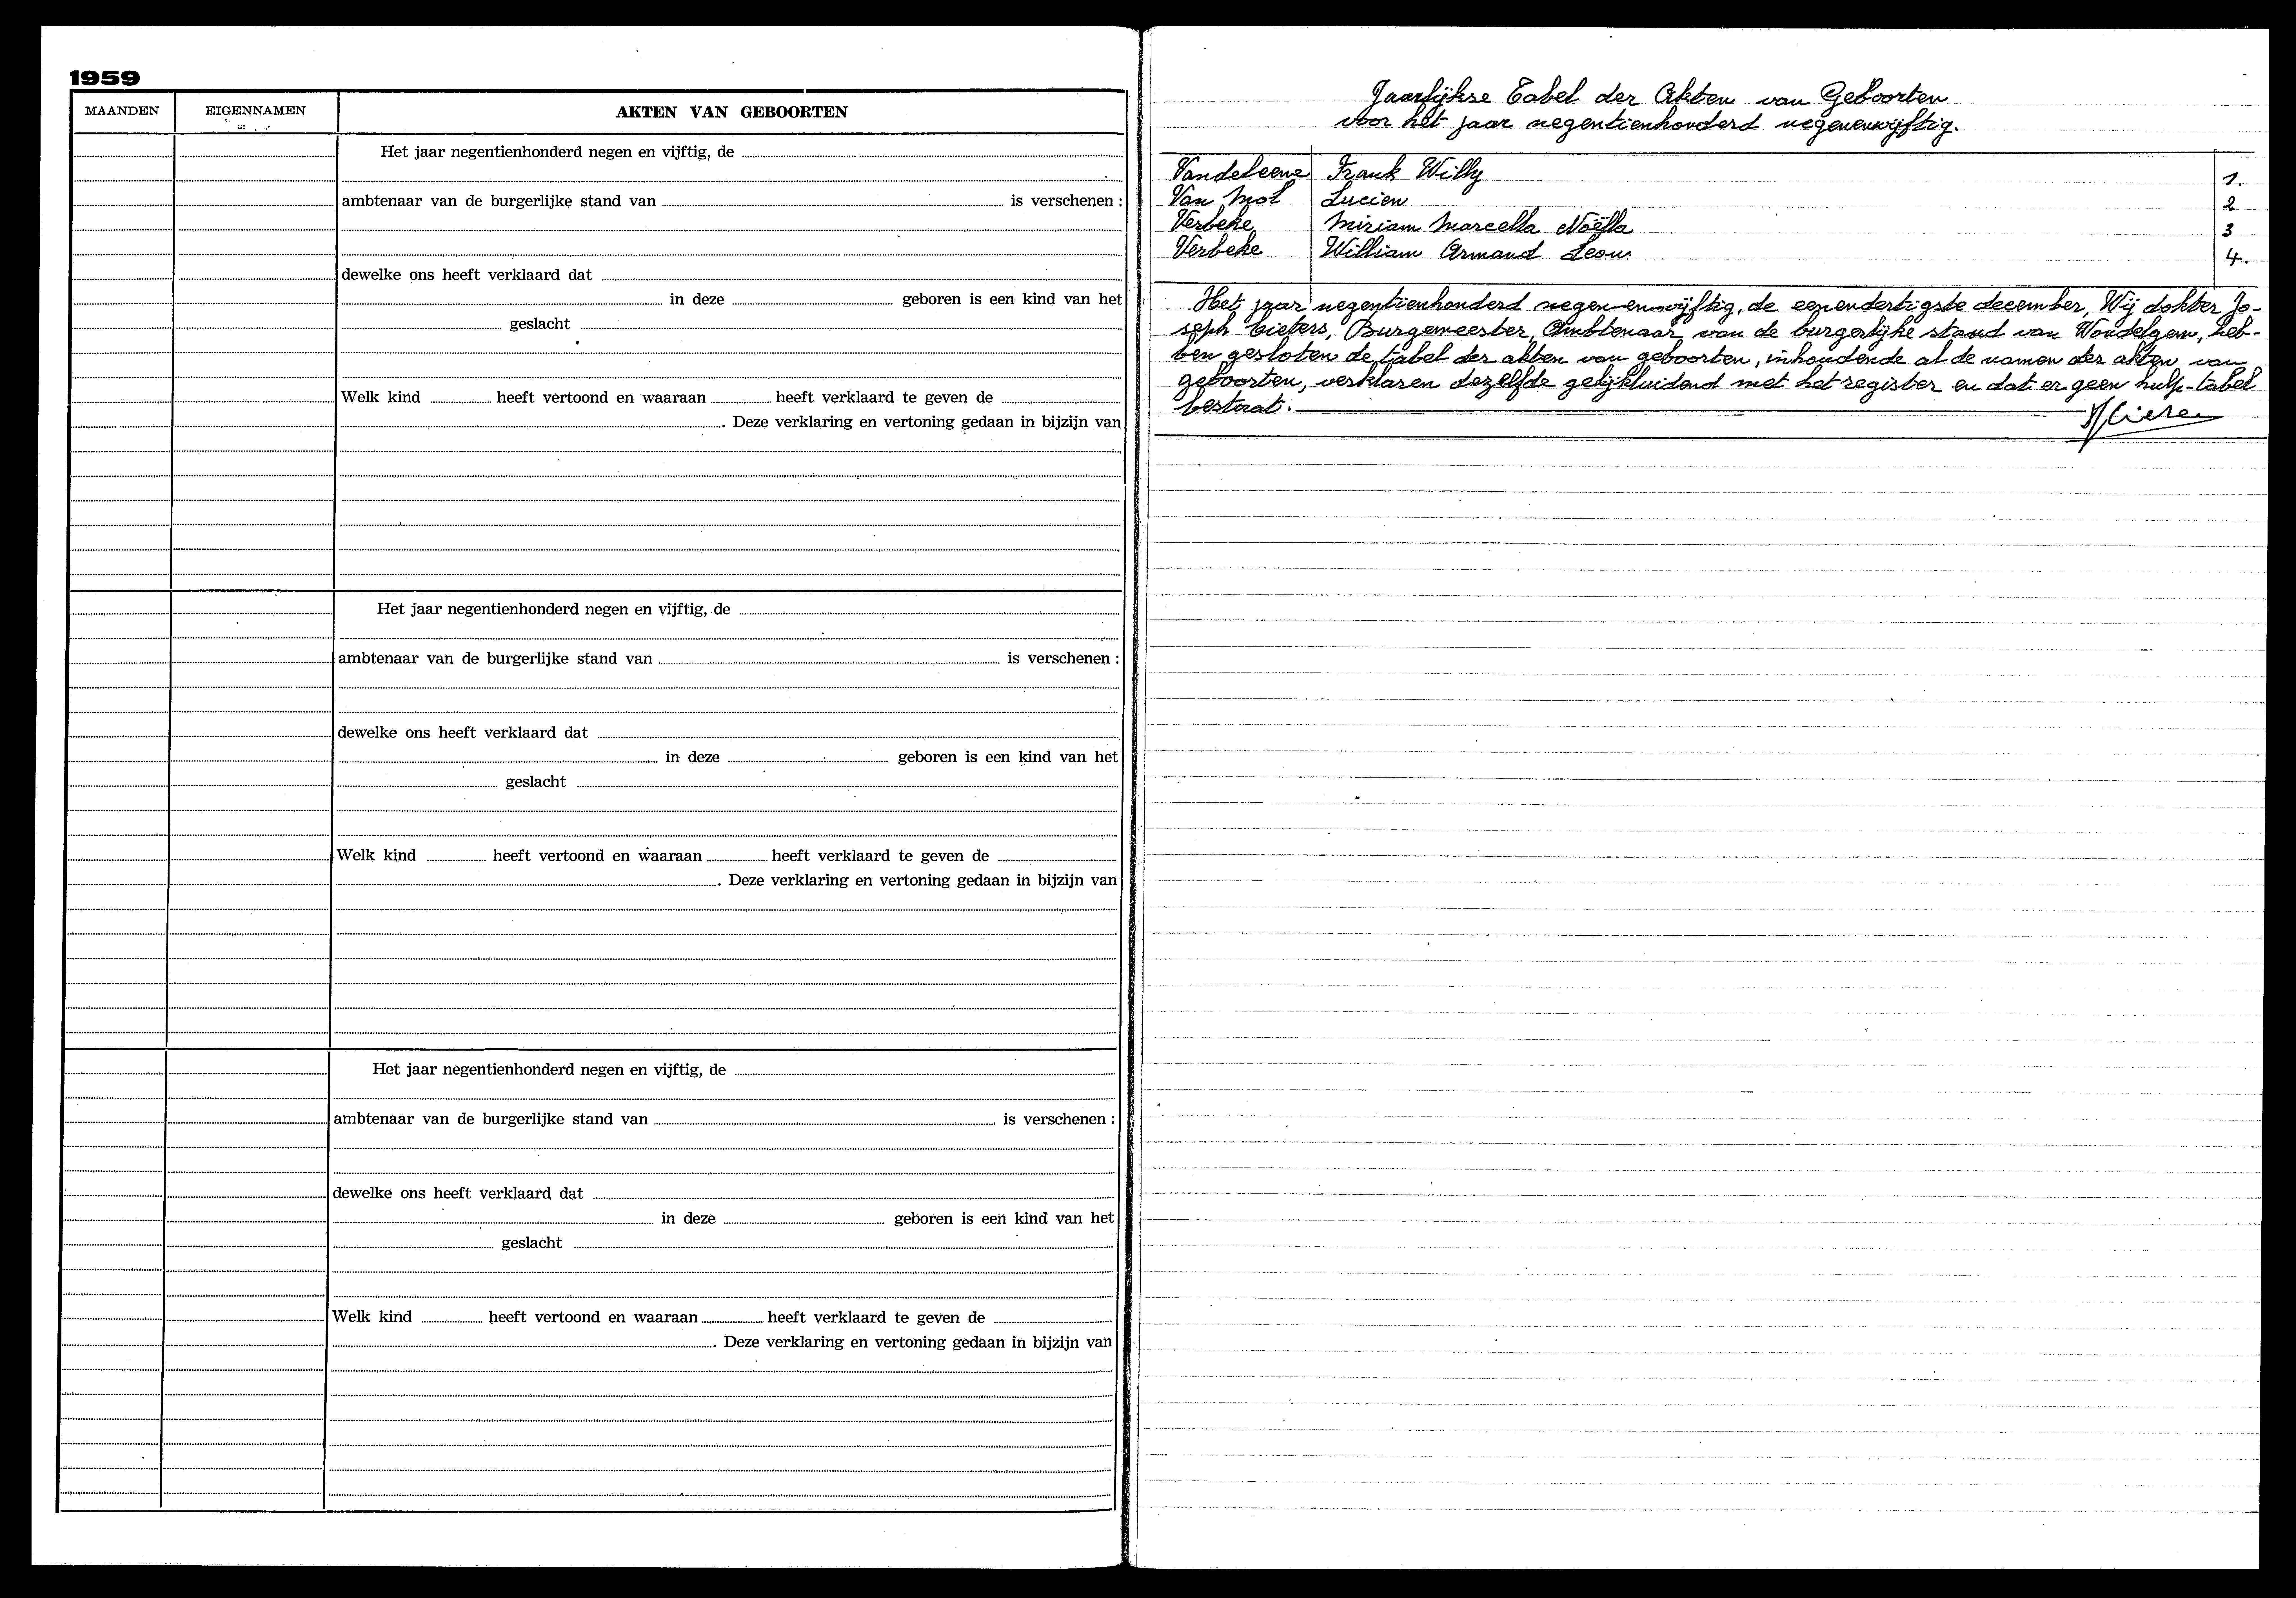 1959
MAANDEN EIGENNAMEN AKTEN VAN GEBOORTEN
Het jaar negentienhonderd negen en vijftig, de
ambtenaar van de burgerlijke stand van is verschenen :
dewelke ons heeft verklaard dat
in deze geboren is een kind van het
geslacht
Welk kind heeft vertoond en waaraan heeft verklaard te geven de
. Deze verklaring en vertoning gedaan in bijzijn van
Het jaar negentienhonderd negen en vijftig, de
ambtenaar van de burgerlijke stand van is verschenen :
dewelke ons heeft verklaard dat
in deze geboren is een kind van het
geslacht
Welk kind heeft vertoond en waaraan heeft verklaard te geven de
. Deze verklaring en vertoning gedaan in bijzijn van
Het jaar negentienhonderd negen en vijftig, de
ambtenaar van de burgerlijke stand van is verschenen :
dewelke ons heeft verklaard dat
in deze geboren is een kind van het
geslacht
Welk kind heeft vertoond en waaraan heeft verklaard te geven de
. Deze verklaring en vertoning gedaan in bijzijn van
Jaarlijkse Tabel der Akten van Geboorten
voor het jaar negentienhonderd negenenvijftig.
Frank Willy 1.
Van Mol Lucien 2
Verbeke Miriam Marcella Noëlla 3
Verbeke William Armand Leon 4.
Het jaar negentienhonderd negen-en-vijftig, de eenendertigste december, Wij dokter Jo-
seph Burgemeester, Ambtenaar van de burgerlijke stand van heb-
ben gesloten de tabel der akten van geboorten, inhoudende al de namen der akten van
geboorten, verklaren dezelfde gelijkluidend met het register en dat er geen hulp-tabel
bestaat.